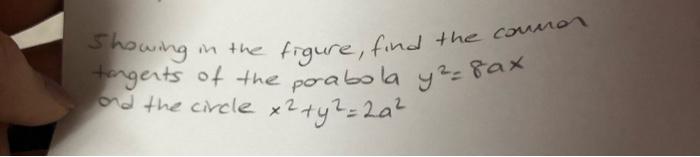 Showing in the figure, find the common
tangents of the parabola y²=8ax
and the circle x²+y²=2a²